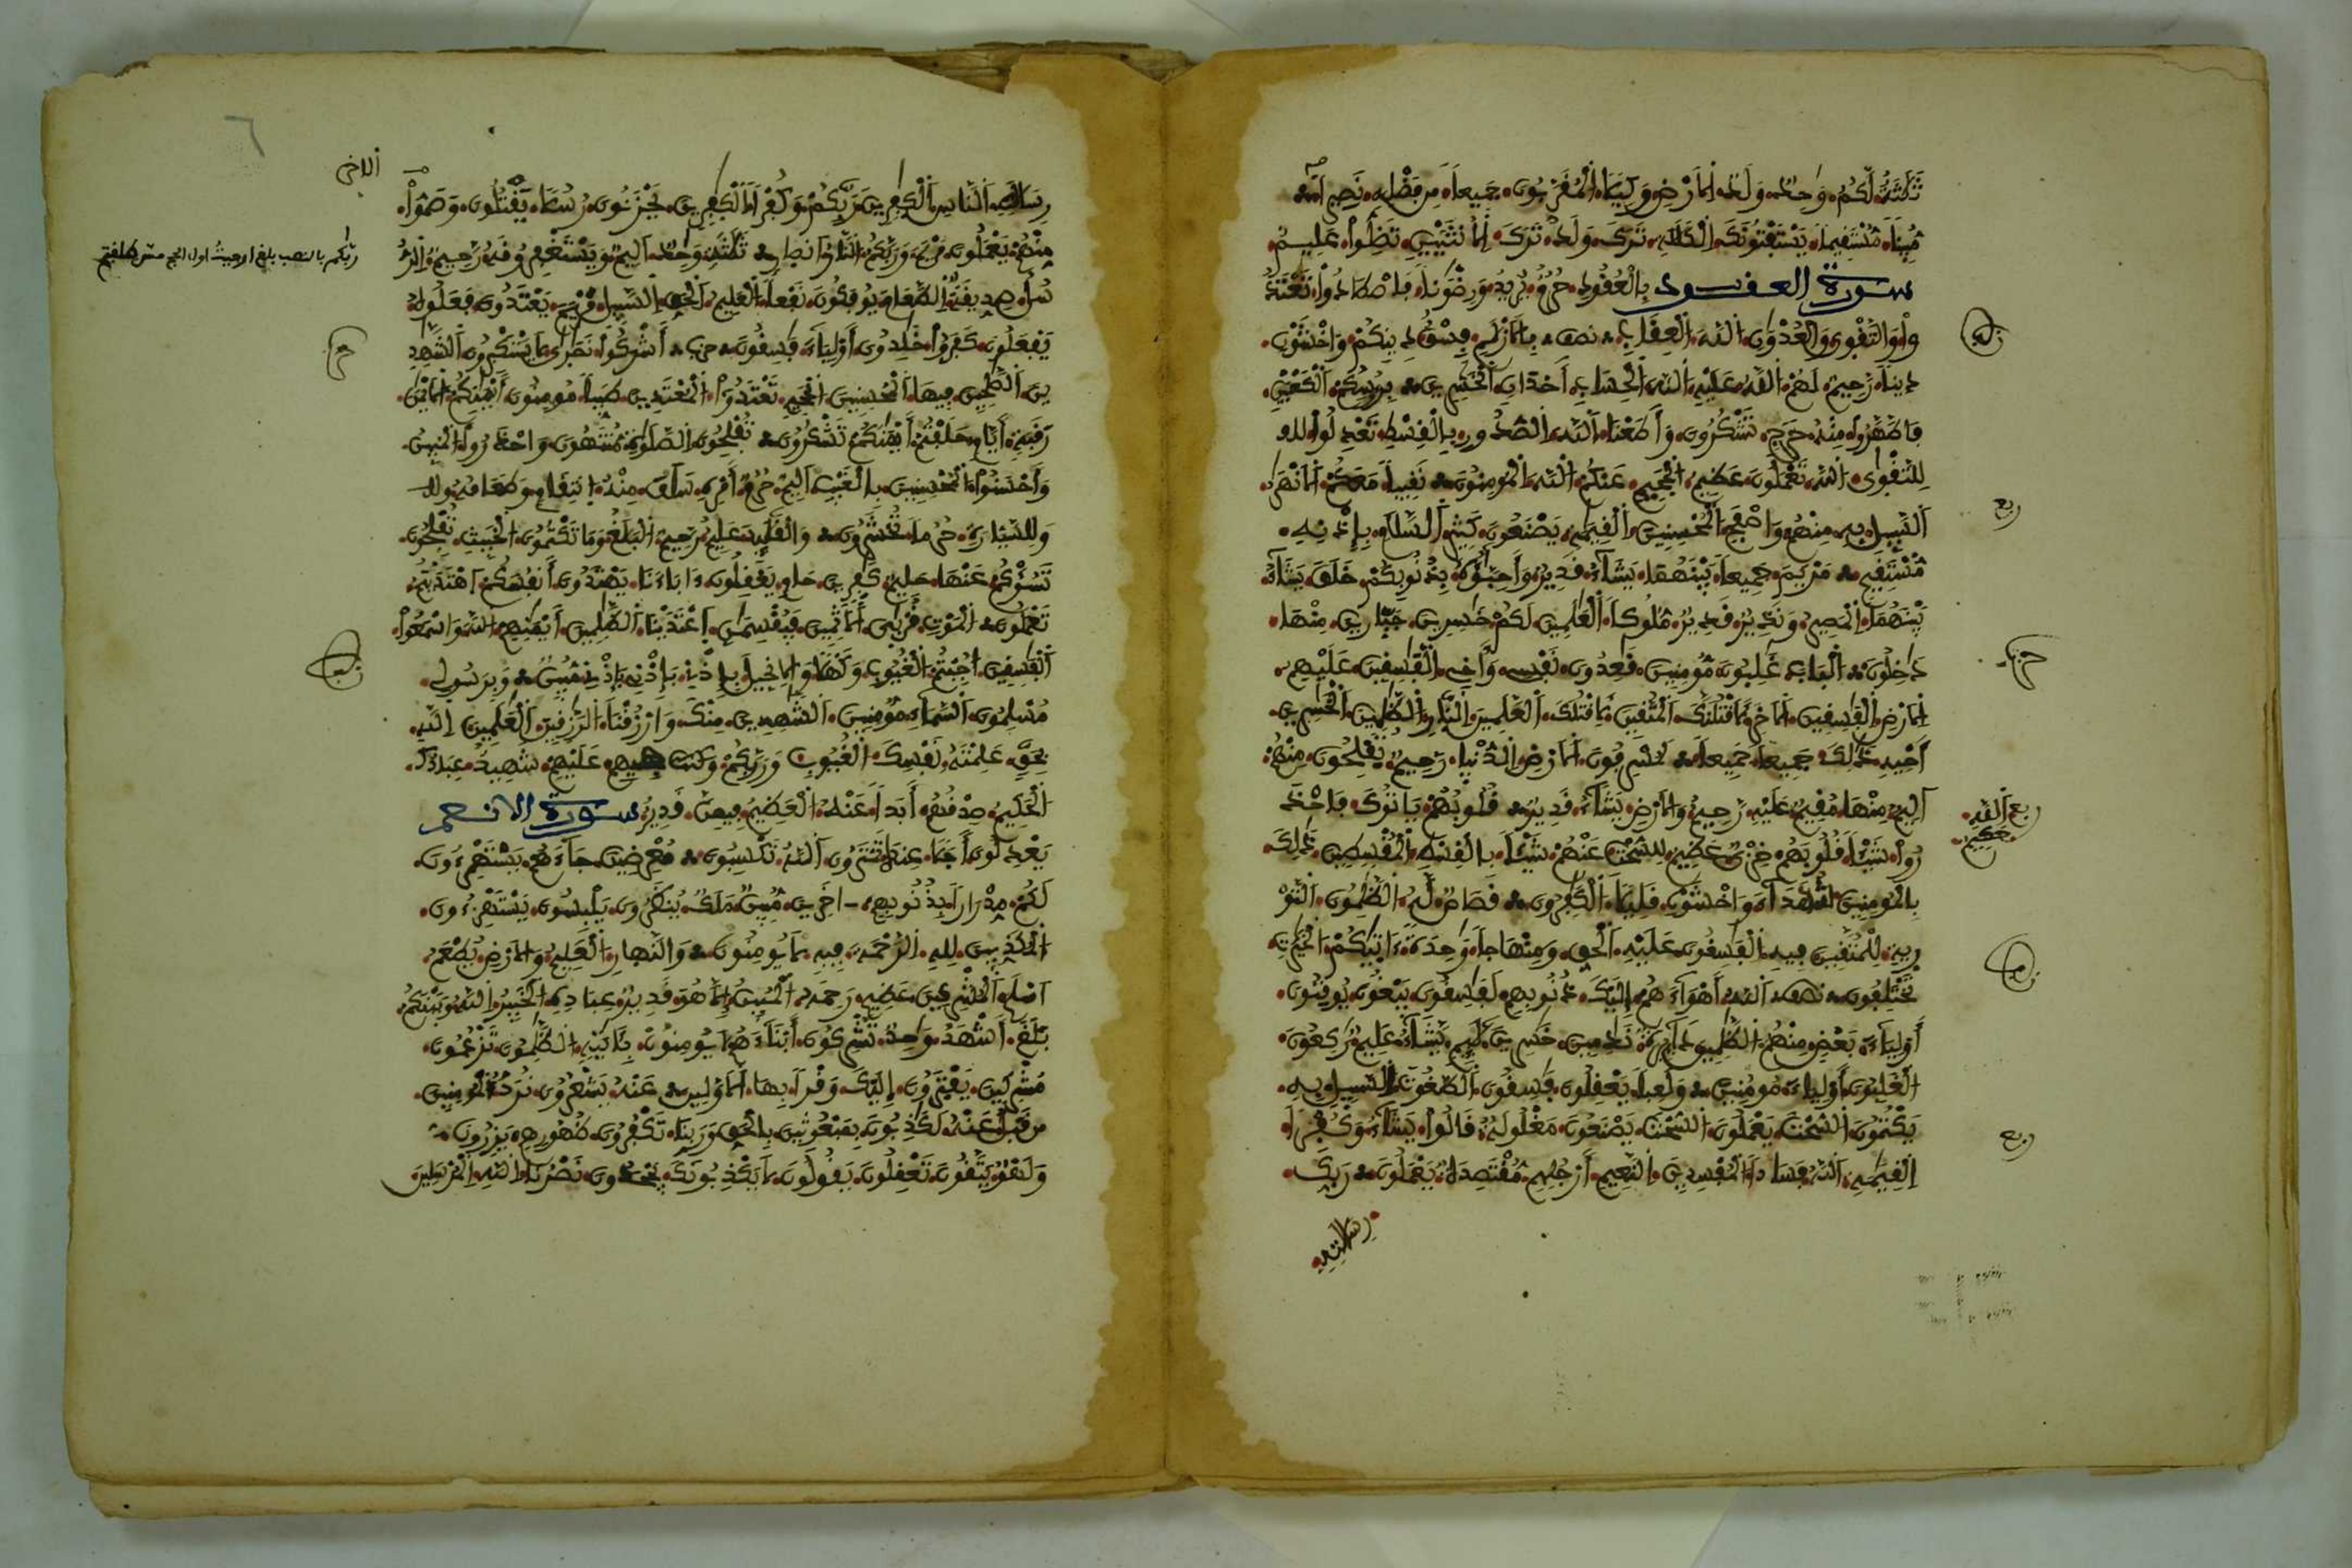 ثَلَثَةٌ لَّكُمْ وَاحِدٌ وَلَدٌ الْأَرْضِ وَكِيلًا الْمُقَرَّبُونَ جَمِيعًا مِن فَضْلِهِ نَصِيرًا
مُّبِينًا مُّسْتَقِيمًا يَسْتَفْتُونَكَ الْكَلَلَةِ تَرَكَ وَلَدٌ تَرَكَ الْأُنثَيَيْنِ تَضِلُّواْ عَلِيمٌ
سورة العقود بِالْعُقُودِ حُرُمٌ يُرِيدُ وَرِضْوَنًا فَاصْطَادُواْ تَعْتَدُ
واْ وَالتَّقْوَى وَالْعُدْوَنِ اللَّهَ الْعِقَابِ نصف بِالْأَزْلَمِ فِسْقٌ دِينِكُمْ وَاخْشَوْنِ
دِينًا رَّحِيمٌ لَهُمْ اللَّهُ عَلَيْهِ اللَّهَ الْحِسَابِ أَخْدَانٍ الْخَسِرِينَ بِرُءُوسِكُمْ الْكَعْبَيْنِ
فَاطَّهَّرُواْ مِنْهُ حَرَجٍ تَشْكُرُونَ وَأَطَعْنَا اللَّهَ الصُّدُورِ بِالْقِسْطِ تَعْدِلُواْ
لِلتَّقْوَى اللَّهَ تَعْمَلُونَ عَظِيمٌ الْجَحِيمِ عَنكُمْ اللَّهَ الْمُومِنُونَ نَقِيبًا مَعَكُمْ الْأَنْهَرُ
السَّبِيلِ بِهِ مِنْهُمْ وَاصْفَحْ الْمُحْسِنِينَ الْقِيَمَةِ يَصْنَعُونَ كَثِيرٍ السَّلَمِ بِإِذْنِهِ
مُّسْتَقِيمٍ مَرْيَمَ جَمِيعًا بَيْنَهُمَا يَشَاءُ قَدِيرٌ وَأَحِبَّؤُهُ بِذُنُوبِكُم خَلَقَ يَشَاءُ
بَيْنَهُمَا الْمَصِيرُ وَنَذِيرٌ قَدِيرٌ مُّلُوكًا الْعَلَمِينَ لَكُمْ خَسِرِينَ جَبَّارِينَ مِنْهَا
دَخِلُونَ الْبَابَ غَلِبُونَ مُّومِنِينَ قَعِدُونَ نَفْسِي وَأَخِي الْفَسِقِينَ عَلَيْهِمْ
الْأَرْضِ الْفَسِقِينَ الْأَخَرِ لَأَقْتُلَنَّكَ الْمُتَّقِينَ لِأَقْتُلَكَ الْعَلَمِينَ النَّارِ الظَّلِمِينَ الْخَسِرِينَ
أَخِيهِ ذَلِكَ جَمِيعًا جَمِيعًا لَمُسْرِفُونَ الْأَرْضِ الدُّنْيَا رَّحِيمٌ تُفْلِحُونَ مِنْهُمْ
أَلِيمٌ مِنْهَا مُّقِيمٌ عَلَيْهِ رَّحِيمٌ وَالْأَرْضِ يَشَاءُ قَدِيرٌ قُلُوبُهُمْ يَاتُوكَ فَاحْذَ
رُواْ شَيْئًا قُلُوبَهُمْ خِزْيٌ عَظِيمٌ لِلسُّحْتِ عَنْهُمْ شَيْئًا بِالْقِسْطِ الْمُقْسِطِينَ ذَلِكَ
بِالْمُومِنِينَ شُهَدَاءَ وَاخْشَوْنِ قَلِيلًا الْكَفِرُونَ قِصَاصٌ لَّهُ الظَّلِمُونَ التَّوْ
رِيةِ لِّلْمُتَّقِينَ فِيهِ الْفَسِقُونَ عَلَيْهِ الْحَقِّ وَمِنْهَاجًا وَاحِدَةً ءَاتَيكُمْ الْخَيْرَتِ
تَخْتَلِفُونَ اللَّهُ أَهْوَاءَهُمْ إِلَيْكَ ذُنُوبِهِمْ لَفَسِقُونَ يَبْغُونَ يُوقِنُونَ
أَوْلِيَاءَ بَعْضٍ مِنْهُمْ الظَّلِمِينَ دَائِرَةٌ نَدِمِينَ خَسِرِينَ لَائِمٍ يَّشَاءُ عَلِيمٌ رَكِعُونَ
الْغَلِبُونَ أَوْلِيَاءَ مُّومِنِينَ وَلَعِبًا يَعْقِلُونَ فَسِقُونَ الطَّغُوتَ السَّبِيلِ بِهِ
يَكْتُمُونَ السُّحْتَ يَعْمَلُونَ السُّحْتَ يَصْنَعُونَ مَغْلُولَةٌ قَالُواْ يَشَاءُ وَكُفْرًا
الْقِيَمَةِ اللَّهُ فَسَادًا الْمُفْسِدِينَ النَّعِيمِ أَرْجُلِهِم مُّقْتَصِدَةٌ يَعْمَلُونَ رَّبِّكَ
رِسَالَتِهِ
ربع
حزب
ربع
ربع
رِسَالَتِهِ النَّاسِ الْكَفِرِينَ رَّبِّكُمْ وَكُفْرًا الْكَفِرِينَ يَحْزَنُونَ رُسُلًا يَقْتُلُونَ وَصَمُّواْ
مِنْهُمْ يَعْمَلُونَ مَرْيَمَ وَرَبَّكُمْ النَّارُ أَنصَارٍ ثَلَثَةٍ وَحِدٌ أَلِيمٌ وَيَسْتَغْفِرُونَهُ رَّحِيمٌ الرُّ
سُلُ صِدِّيقَةٌ الطَّعَامَ يُوفَكُونَ نَفْعًا الْعَلِيمُ الْحَقِّ السَّبِيلِ مَرْيَمَ يَعْتَدُونَ فَعَلُوهُ
يَفْعَلُونَ كَفَرُواْ خَلِدُونَ أَوْلِيَاءَ فَسِقُونَ حزب أَشْرَكُواْ نَصَرَى لَا يَسْتَكْبِرُونَ الشَّهِدِ
ينَ الصَّلِحِينَ فِيهَا الْمُحْسِنِينَ الْجَحِيمِ تَعْتَدُواْ الْمُعْتَدِينَ طَيِّبًا مُومِنُونَ أَيْمَنِكُمْ الْأَيْمَنَ
رَقَبَةٍ أَيَّامٍ حَلَفْتُمْ أَيْمَنَكُمْ تَشْكُرُونَ تُفْلِحُونَ الصَّلَوةِ مُّنتَهُونَ وَاحْذَرُواْ الْمُبِينُ
وَّأَحْسَنُواْ الْمُحْسِنِينَ بِالْغَيْبِ أَلِيمٌ حُرُمٌ أَمْرِهِ سَلَفَ مِنْهُ انتِقَامٍ وَطَعَامُهُ
وَلِلسَّيَّارَةِ حُرُمًا تُحْشَرُونَ وَالْقَلَئِدَ عَلِيمٌ رَّحِيمٌ الْبَلَغُ وَمَا تَكْتُمُونَ الْخَبِيثِ تُفْلِحُونَ
تَسُؤْكُمْ عَنْهَا حَلِيمٌ كَفِرِينَ حَامٍ يَعْقِلُونَ ءَابَاءَنَا يَهْتَدُونَ أَنفُسَكُمْ اهْتَدَيْتُمْ
تَعْمَلُونَ الْمَوْتِ قُرْبَى الْأَثِمِينَ فَيُقْسِمَنِ اعْتَدَيْنَا الظَّلِمِينَ أَيْمَنِهِمْ اللَّهَ وَاسْمَعُواْ
الْفَسِقِينَ أُجِبْتُمْ الْغُيُوبِ وَكَهْلًا وَالْإِنجِيلَ بِإِذْنِي بِإِذْنِي بِإِذْنِي مُّبِينٌ وَبِرَسُولِي
مُسْلِمُونَ السَّمَاءِ مُّومِنِينَ الشَّهِدِينَ مِنكَ وَارْزُقْنَا الرَّزِقِينَ الْعَلَمِينَ اللَّهِ
بِحَقٍّ عَلِمْتَهُ نَفْسِكَ الْغُيُوبِ وَرَبَّكُمْ عَلَيْهِمْ شَهِيدٌ عِبَادُكَ
الْحَكِيمُ صِدْقُهُمْ أَبَدًا عَنْهُ الْعَظِيمُ فِيهِنَّ قَدِيرٌ سورة الانعم
يَعْدِلُونَ أَجَلًا عِندَهُ تَمْتَرُونَ اللَّهُ تَكْسِبُونَ مُعْرِضِينَ جَاءَهُمْ يَسْتَهْزِءُونَ
لَكُمْ مِّدْرَارًا بِذُنُوبِهِمْ ءَاخَرِينَ مُّبِينٌ مَلَكٌ يُنظَرُونَ يَلْبِسُونَ يَسْتَهْزِءُونَ
الْمُكَذِّبِينَ لِلهِ الرَّحْمَةَ فِيهِ لَا يُومِنُونَ وَالنَّهَارِ الْعَلِيمُ وَالْأَرْضِ يُطْعَمُ
أَسْلَمَ الْمُشْرِكِينَ عَظِيمٍ رَحِمَهُ الْمُبِينُ إِلَّا هُوَ قَدِيرٌ عِبَادِهِ الْخَبِيرُ اللَّهُ وَبَيْنَكُمْ
بَلَغَ أَشْهَدُ وَاحِدٌ تُشْرِكُونَ أَبْنَاءَهُمْ لَا يُومِنُونَ بِئَايَتِهِ الظَّلِمُونَ تَزْعُمُونَ
مُشْرِكِينَ يَفْتَرُونَ إِلَيْكَ وَقْرًا بِهَا الْأَوَّلِينَ عَنْهُ يَشْعُرُونَ نُرَدُّ الْمُومِنِينَ
مِن قَبْلُ عَنْهُ لَكَذِبُونَ بِمَبْعُوثِينَ بِالْحَقِّ وَرَبِّنَا تَكْفُرُونَ ظُهُورِهِمْ يَزِرُونَ
وَلَهْوٌ يَتَّقُونَ تَعْقِلُونَ يَقُولُونَ لَا يُكْذِبُونَكَ يَجْحَدُونَ نَصْرُنَا اللَّهِ الْمُرْسَلِينَ
ربكم بالنصب بلغ